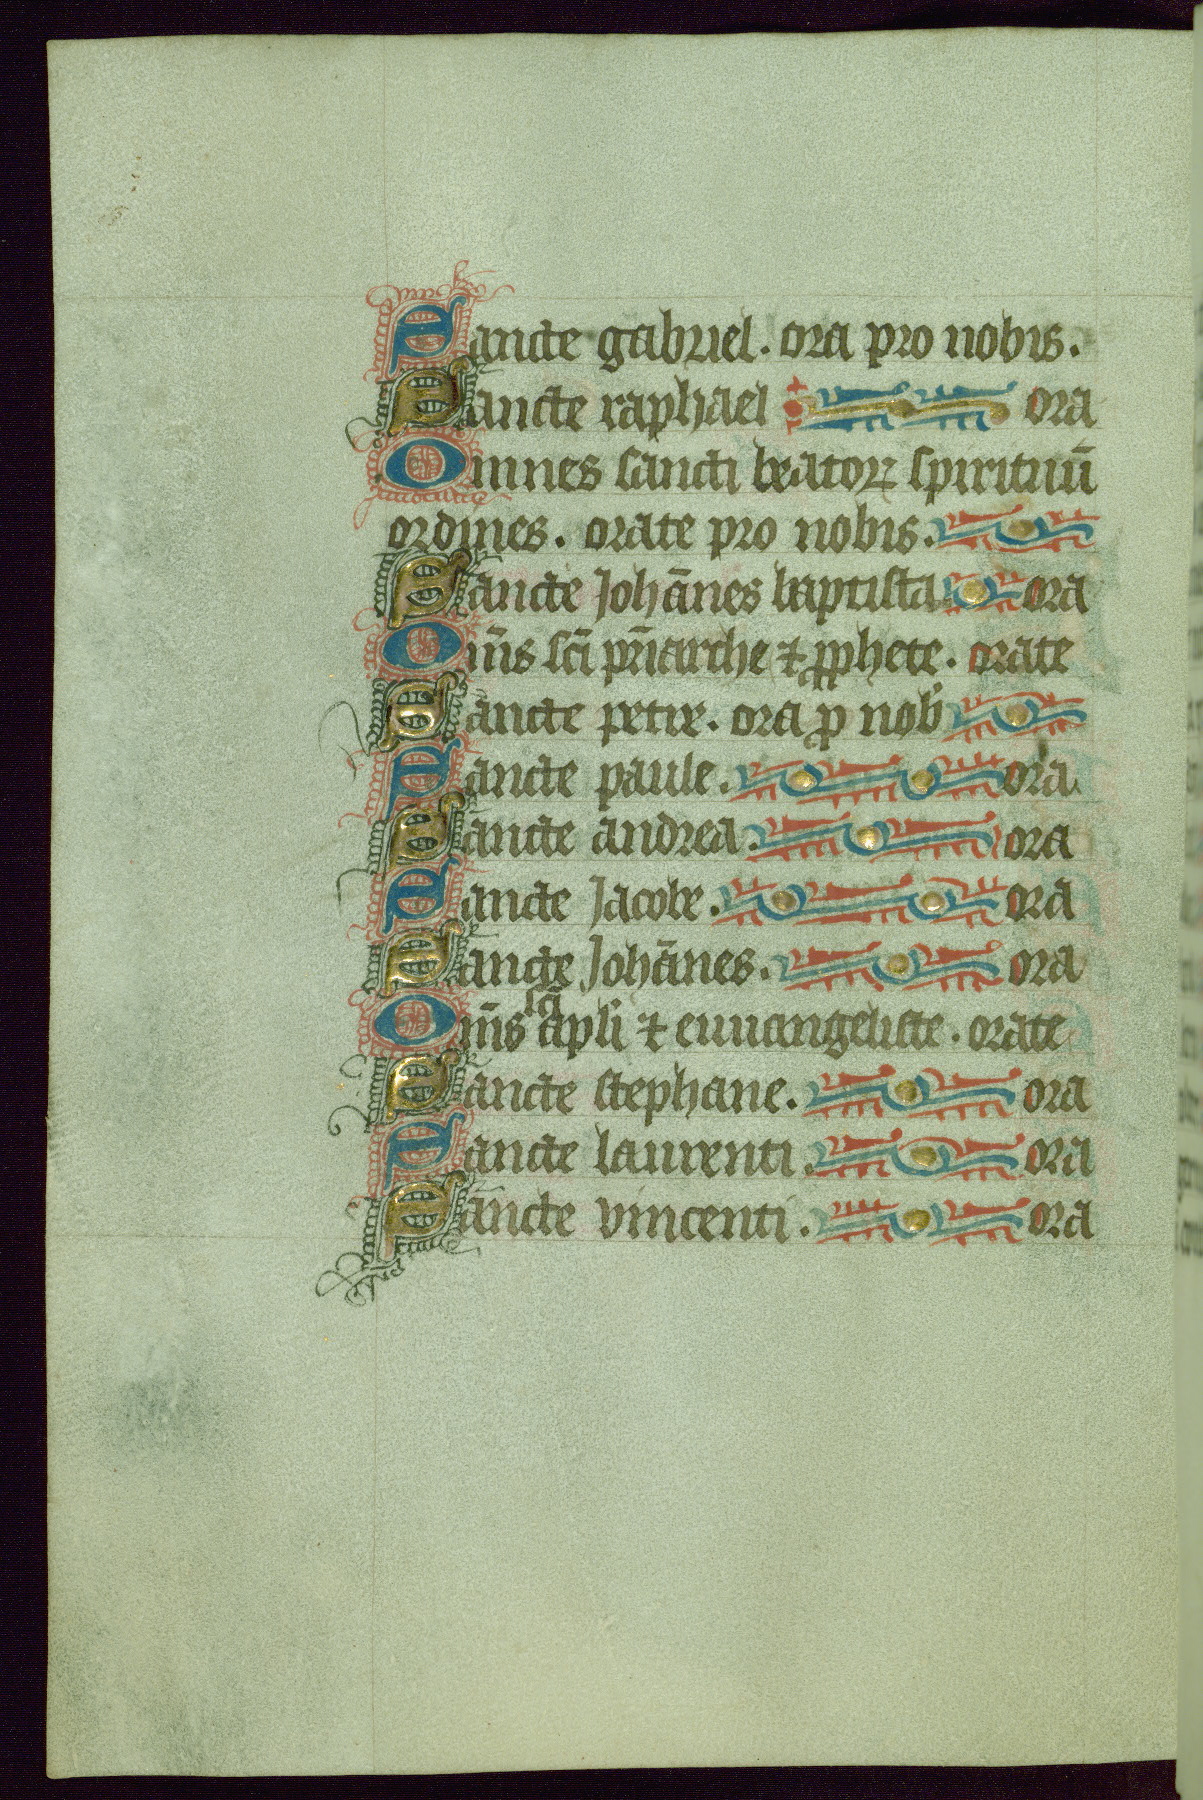 Sancte gabriel. ora pro nobis.
Sancte raphael ora
Omnes sancti beatoꝝ spirituū
ordines. orate pro nobis.
Sancte Johānes baptista ora
Om̄s sc̄i pr̄iarche ⁊ ꝓphete. orate
Sancte petre. ora ꝓ nob̾
Sancte paule. ora
Sancte andrea. ora
Sancte Jacobe. ora
Sancte Johānes. ora
Om̄s sc̄i apl̄i ⁊ euuangeliste. orate
Sancte stephane. ora
Sancte laurenti. ora
Sancte vincenti. ora